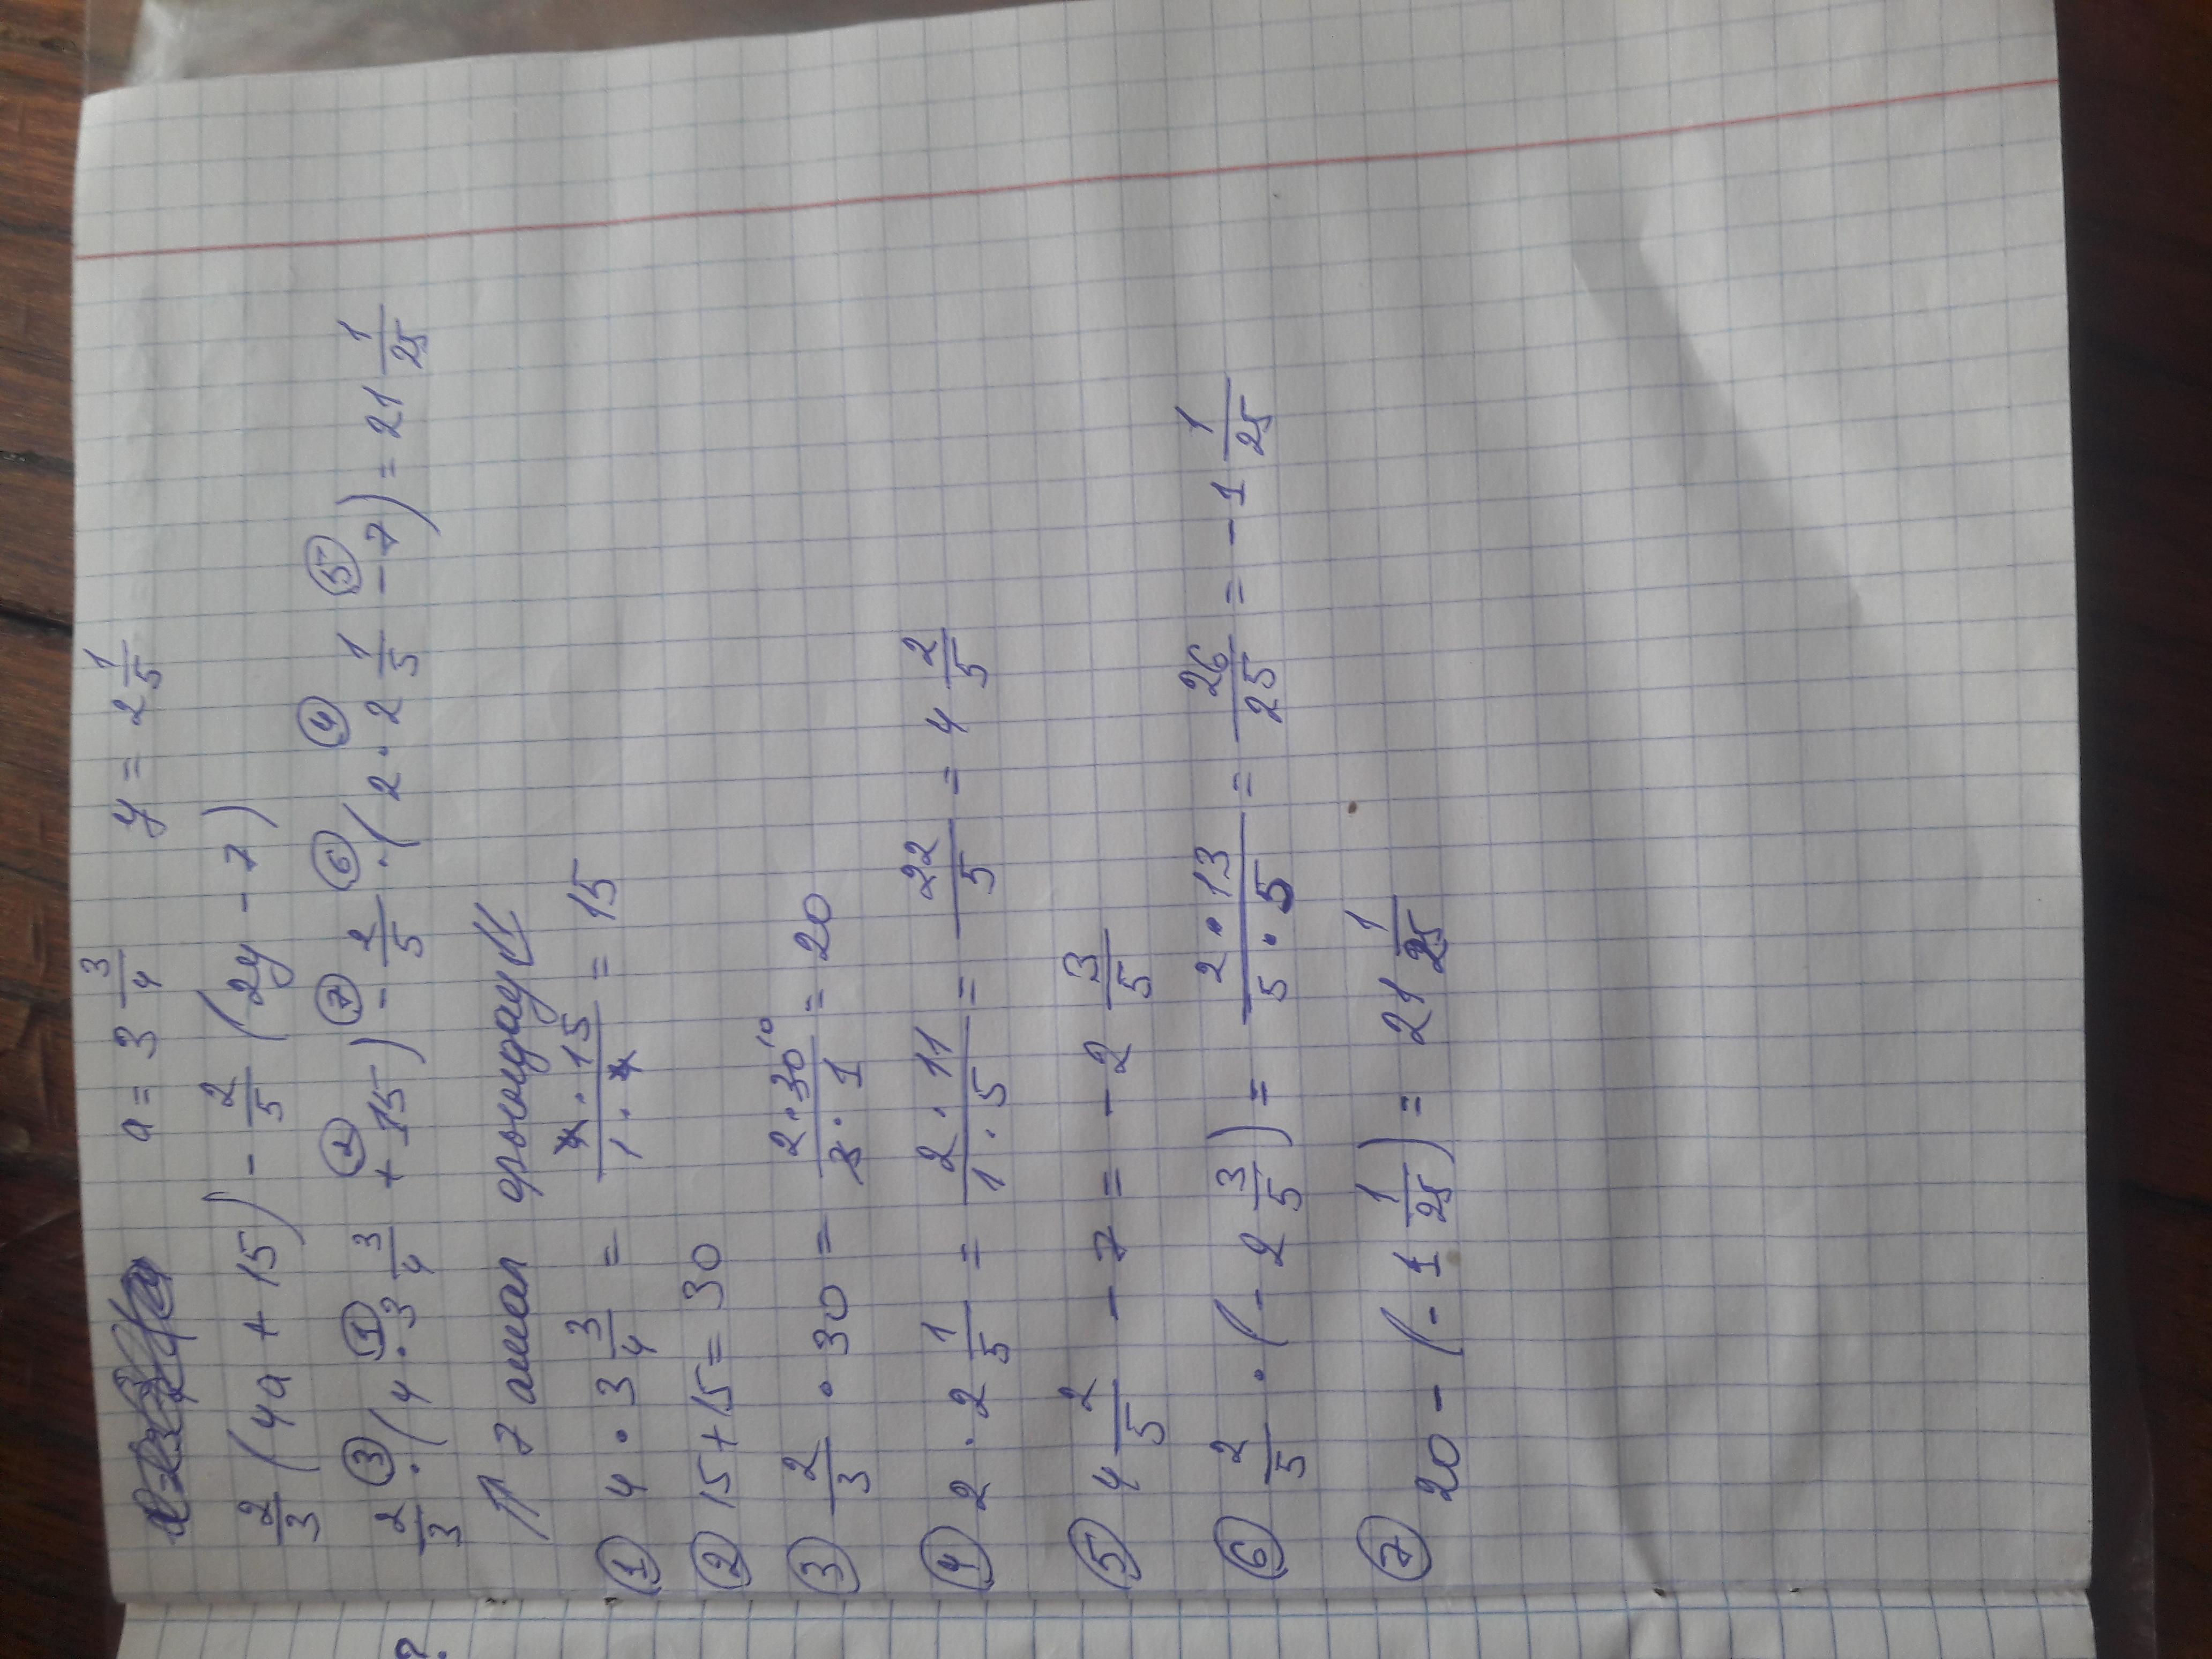 a = 3 3/4 y = 2 1/5
2/3 (4a + 15) - 2/5 (2y - 7)
2/3 ③· (4 ①· 3 3/4 ②+ 15) ⑦- 2/5 ⑥· (2 ④· 2 1/5 ⑤- 7) = 21 1/25
7 амал
① 4 · 3 3/4 = 4 · 15 / 1 · 4 = 15
② 15 + 15 = 30
③ 2/3 · 30 = 2 · 30 10 / 3 · 1 = 20
④ 2 · 2 1/5 = 2 · 11 / 1 · 5 = 22/5 = 4 2/5
⑤ 4 2/5 - 7 = - 2 3/5
⑥ 2/5 · (- 2 3/5) = 2 · 13 / 5 · 5 = 26/25 = - 1 1/25
⑦ 20 - (- 1 1/25) = 21 1/25
?